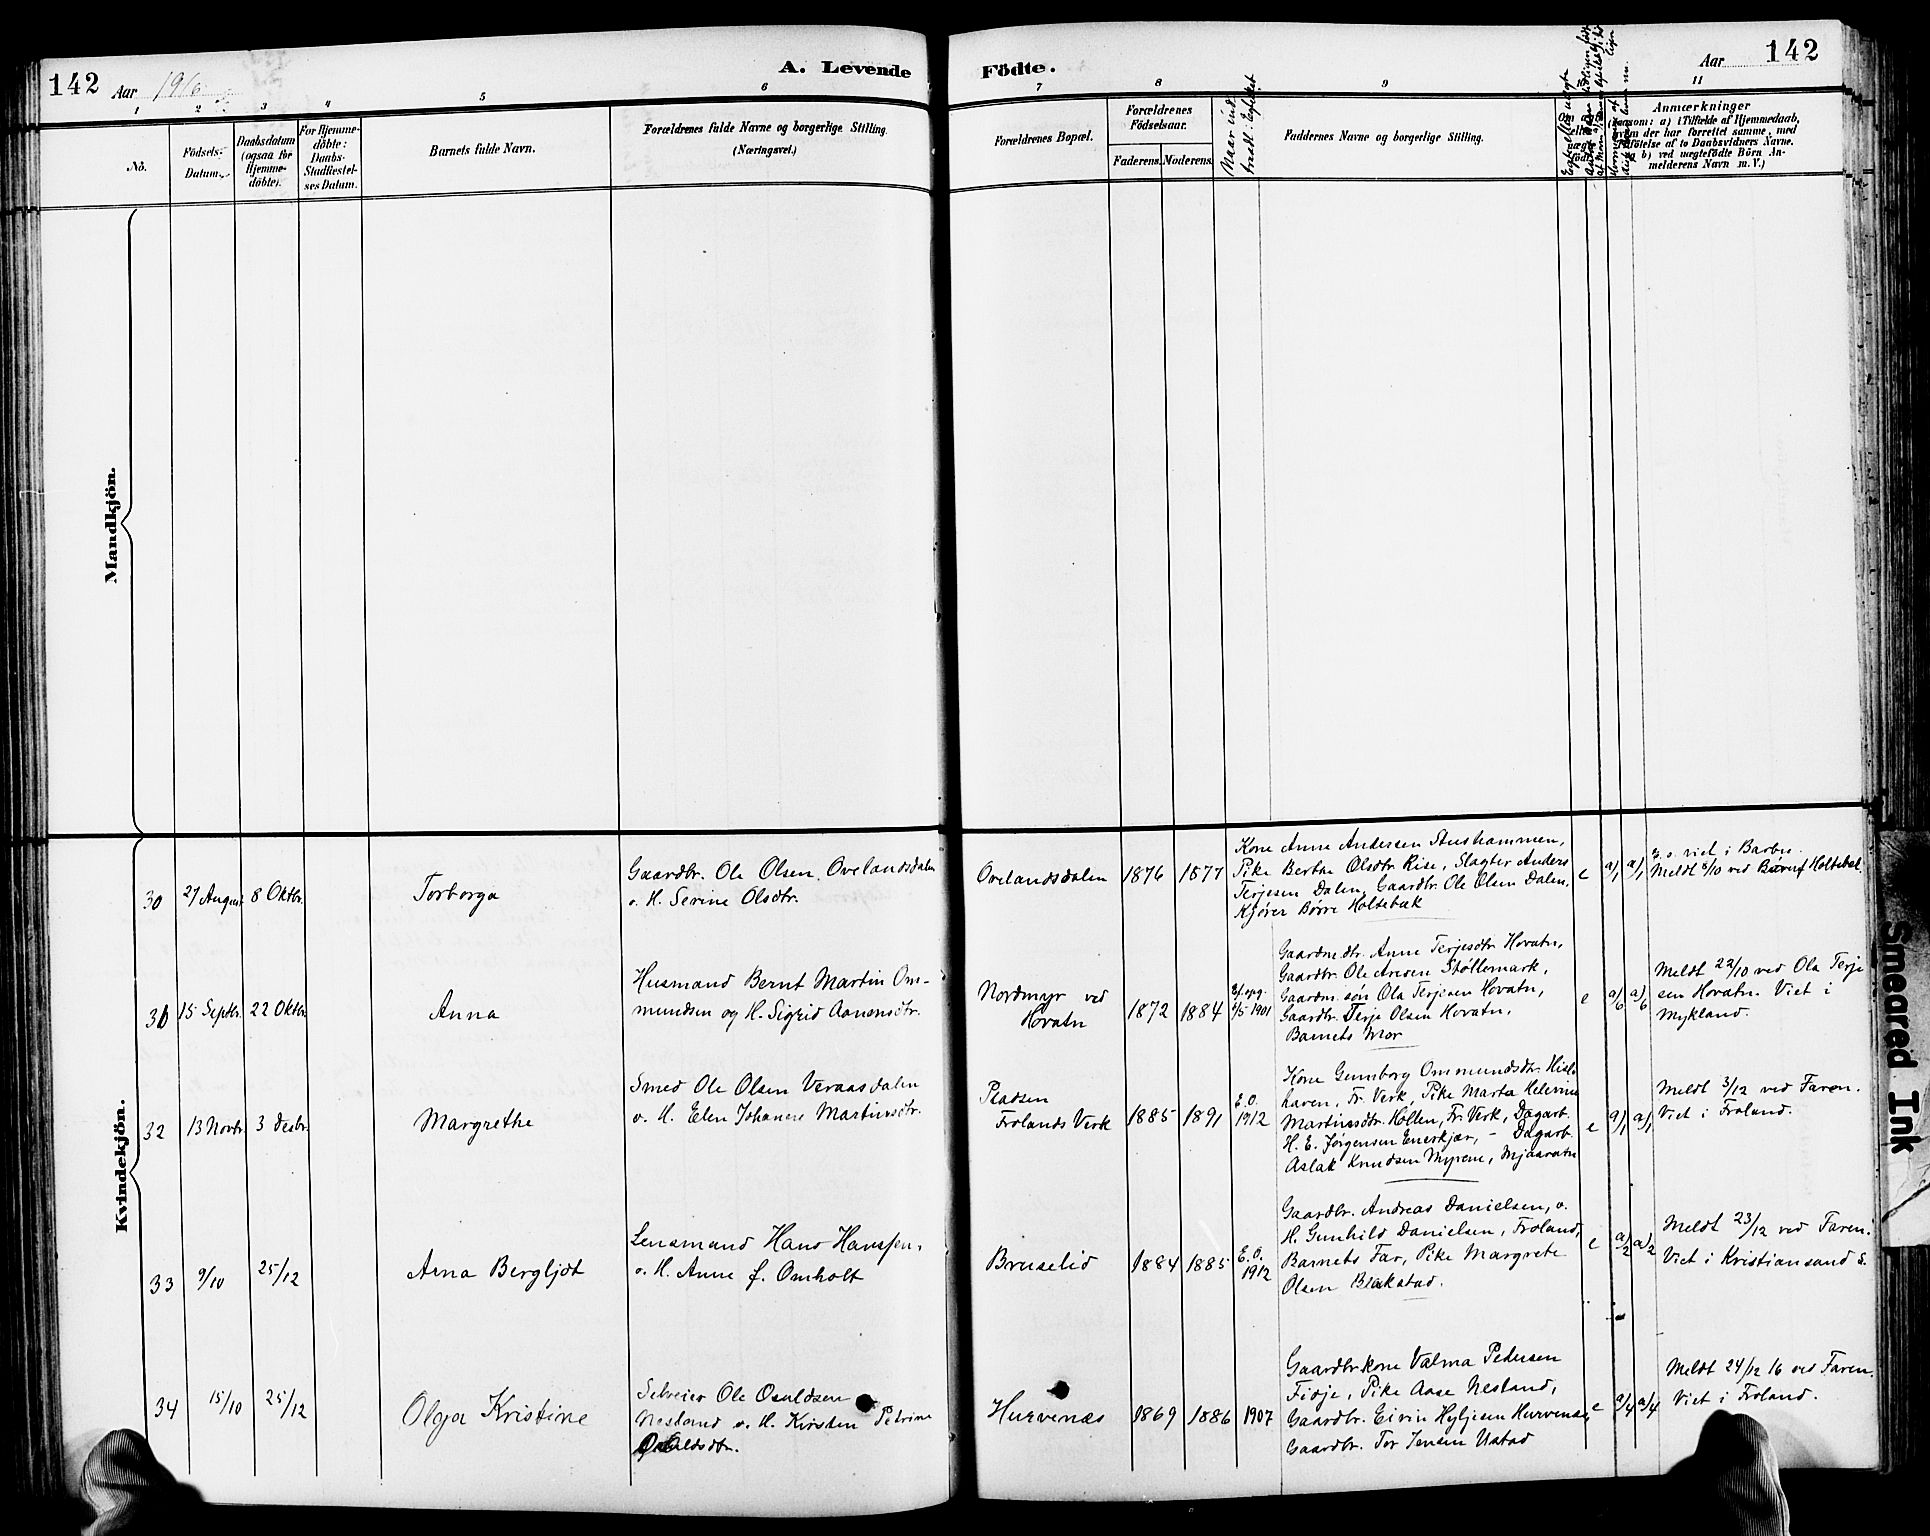 142
Aar 1916
A. Levende
Födte.
Aar
142
1
2
3
4
5
6
7
8
9
11
Nö.
Födsels-
Datum.
Daabsdatum
(ogsaa for
Hjemme-
döbte).
For Hjemme-
döbte:
Daabs-
Stadfæstel-
ses Datum.
Barnets fulde Navn.
Forældrenes fulde Navne og borgerlige Stilling.
(Næringsvei.)
Forældrenes Bopæl.
Forældrenes
Födselsaar.
Faderens.
Moderens.
Naar ind-
traadt i Egteskab
Faddernes Navne og borgerlige Stilling.
Anmærkninger
(saasom: a) i Tilfælde af Hjemmedaab,
hvem der har forrettet samme, med
Tilföielse af to Daabsvidners Navne.
b) ved uegtefödte Börn An-
melderens Navn m. V.)
Mandkjön.
Kvindekjön.
30
27 August
8 Oktbr.
Torborga
Gaardbr. Ole Olsen, Ovelandsdalen
o. H. Serine Olsdtr.
Ovelandsdalen
1876
1877
Kone Anne Andersen Stushammen,
Pike Berthe Olsdtr. Rise, Slagter Anders
Terjesen Dalen, Gaardbr. Ole Olsen Dalen,
Kjører Børre Holtebæk
e
a/1
a/1
E. o. viet i Barbu.
Meldt 6/10 ved Børre Holtebæk
31
15 Septbr.
22 Oktbr.
Anna
Husmand Bernt Martin Om-
mundsen og H. Sigrid Aanensdtr.
Nordmyr ved
Hovatn
1872
1884
1901
Gaardmdtr. Anne Terjesdtr. Hovatn,
Gaardbr. Ole Aresen Støllemark,
Gaardm. søn Ola Terjesen Hovatn,
Gaardbr. Terje Olsen Hovatn,
Barnets Mor
e
a/6
a/6
Meldt 22/10 ved Ola Terje
sen Hovatn. Viet i
Mykland.
32
13 Novbr.
3 Desbr.
Margrethe
Smed Ole Olsen Veraasdalen
o. H. Elen Johanne Martinsdtr.
Pladsen
Frolands Verk
1885
1891
E. O.
1912
Kone Gunnborg Ommundsdtr. Hisle
haven, Fr. Verk, Pike Marta Helene
Martinsdtr. Holten, Fr. Verk, Dagarb.
H. E. Jørgensen Enerkjær, – Dagarb.
Aslak Knudsen Myrene, Mjaavatn
e
a/1
a/1
Meldt 3/12 ved Faren.
Viet i Froland.
33
9/10
25/12
Arna Bergljot
Lensmand Hans Hanssen,
o. H. Anne f. Omholt
Bruselid
1884
1885
E. O.
1912
Gaardbr. Andreas Danielsen, o.
H. Gunhild Danielsen, Froland,
Barnets Far, Pike Margrete
Olsen Blakstad.
e
a/2
a/2
Meldt 23/12 ved Faren.
Viet i Kristiansand S.
34
15/10
25/12
Olga Kristine
Selveier Ole Osuldsen
Nestand o. H. Kirsten Petrine
Osuldsdtr.
Hurvenæs
1869
1886
1907
Gaardbrkone Valma Pedersen
Fidje, Pike Aase Nesland,
Gaardbr. Eivin Hyljesen Hurvenæs,
Gaardbr. Tor Jensen Ustad
e
a/4
a/4
Meldt 24/12 16 ved Faren.
Viet i Froland.
Smeared Ink